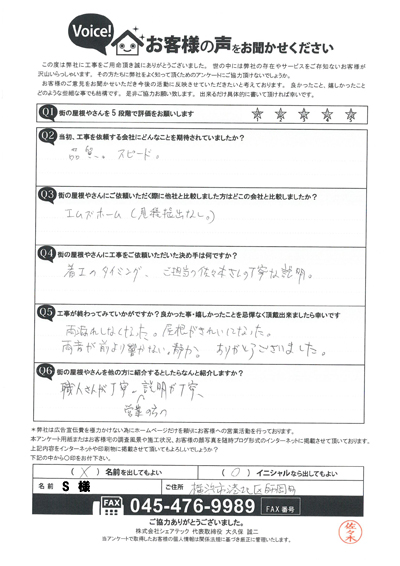 Voice!
お客様の声をお聞かせください
この度は弊社に工事をご用命頂き誠にありがとうございました。世の中には弊社の存在やサービスをご存知ないお客様が
沢山いらっしゃいます。その方たちに弊社をよく知って頂くためのアンケートにご協力頂けないでしょうか。
お客様のご意見をお聞かせいただき今後の活動に反映させていただきたいと考えております。良かったこと、嬉しかったこと
どのような些細な事でも結構です。是非ご協力お願い致します。出来るだけ具体的に書いて頂ければ幸いです。
Q1 街の屋根やさんを5段階で評価をお願いします
Q2 当初、工事を依頼する会社にどんなことを期待されていましたか?
品質、スピード。
Q3 街の屋根やさんにご依頼いただく際に他社と比較しました方はどこの会社と比較しましたか?
エムズホーム(見積提出なし。)
Q4 街の屋根やさんに工事をご依頼いただいた決め手は何ですか?
着工のタイミング、ご担当の佐々木さんの丁寧な説明。
Q5 工事が終わってみていかがですか?良かった事・嬉しかったことを忌憚なく頂戴出来ましたら幸いです
雨漏れしなくなった。屋根がきれいになった。
雨音が前より響かない。静か。ありがとうございました。
Q6 街の屋根やさんを他の方に紹介するとしたらなんと紹介しますか?
職人さんが丁寧、説明が丁寧、
営業の方の
*弊社は広告宣伝費を極力かけない為にホームページだけを頼りにお客様への営業活動を行っております。
本アンケート用紙またはお客様宅の調査風景や施工状況、お客様の顔写真を随時ブログ形式のインターネットに掲載させて頂いております。
上記内容をインターネットや印刷物に掲載させて頂いてもよろしいでしょうか?
下記の中から〇印をお付け下さい。
(×)名前を出してもよい (〇)イニシャルなら出してもよい
名前 S 様 ご住所 横浜市港北区
FAX 045-476-9989 FAX番号
ご協力ありがとうございました。
株式会社シェアテック 代表取締役 大久保 誠二
当アンケートで取得したお客様の個人情報は関係法規に基づき厳正に管理いたします。
佐々木